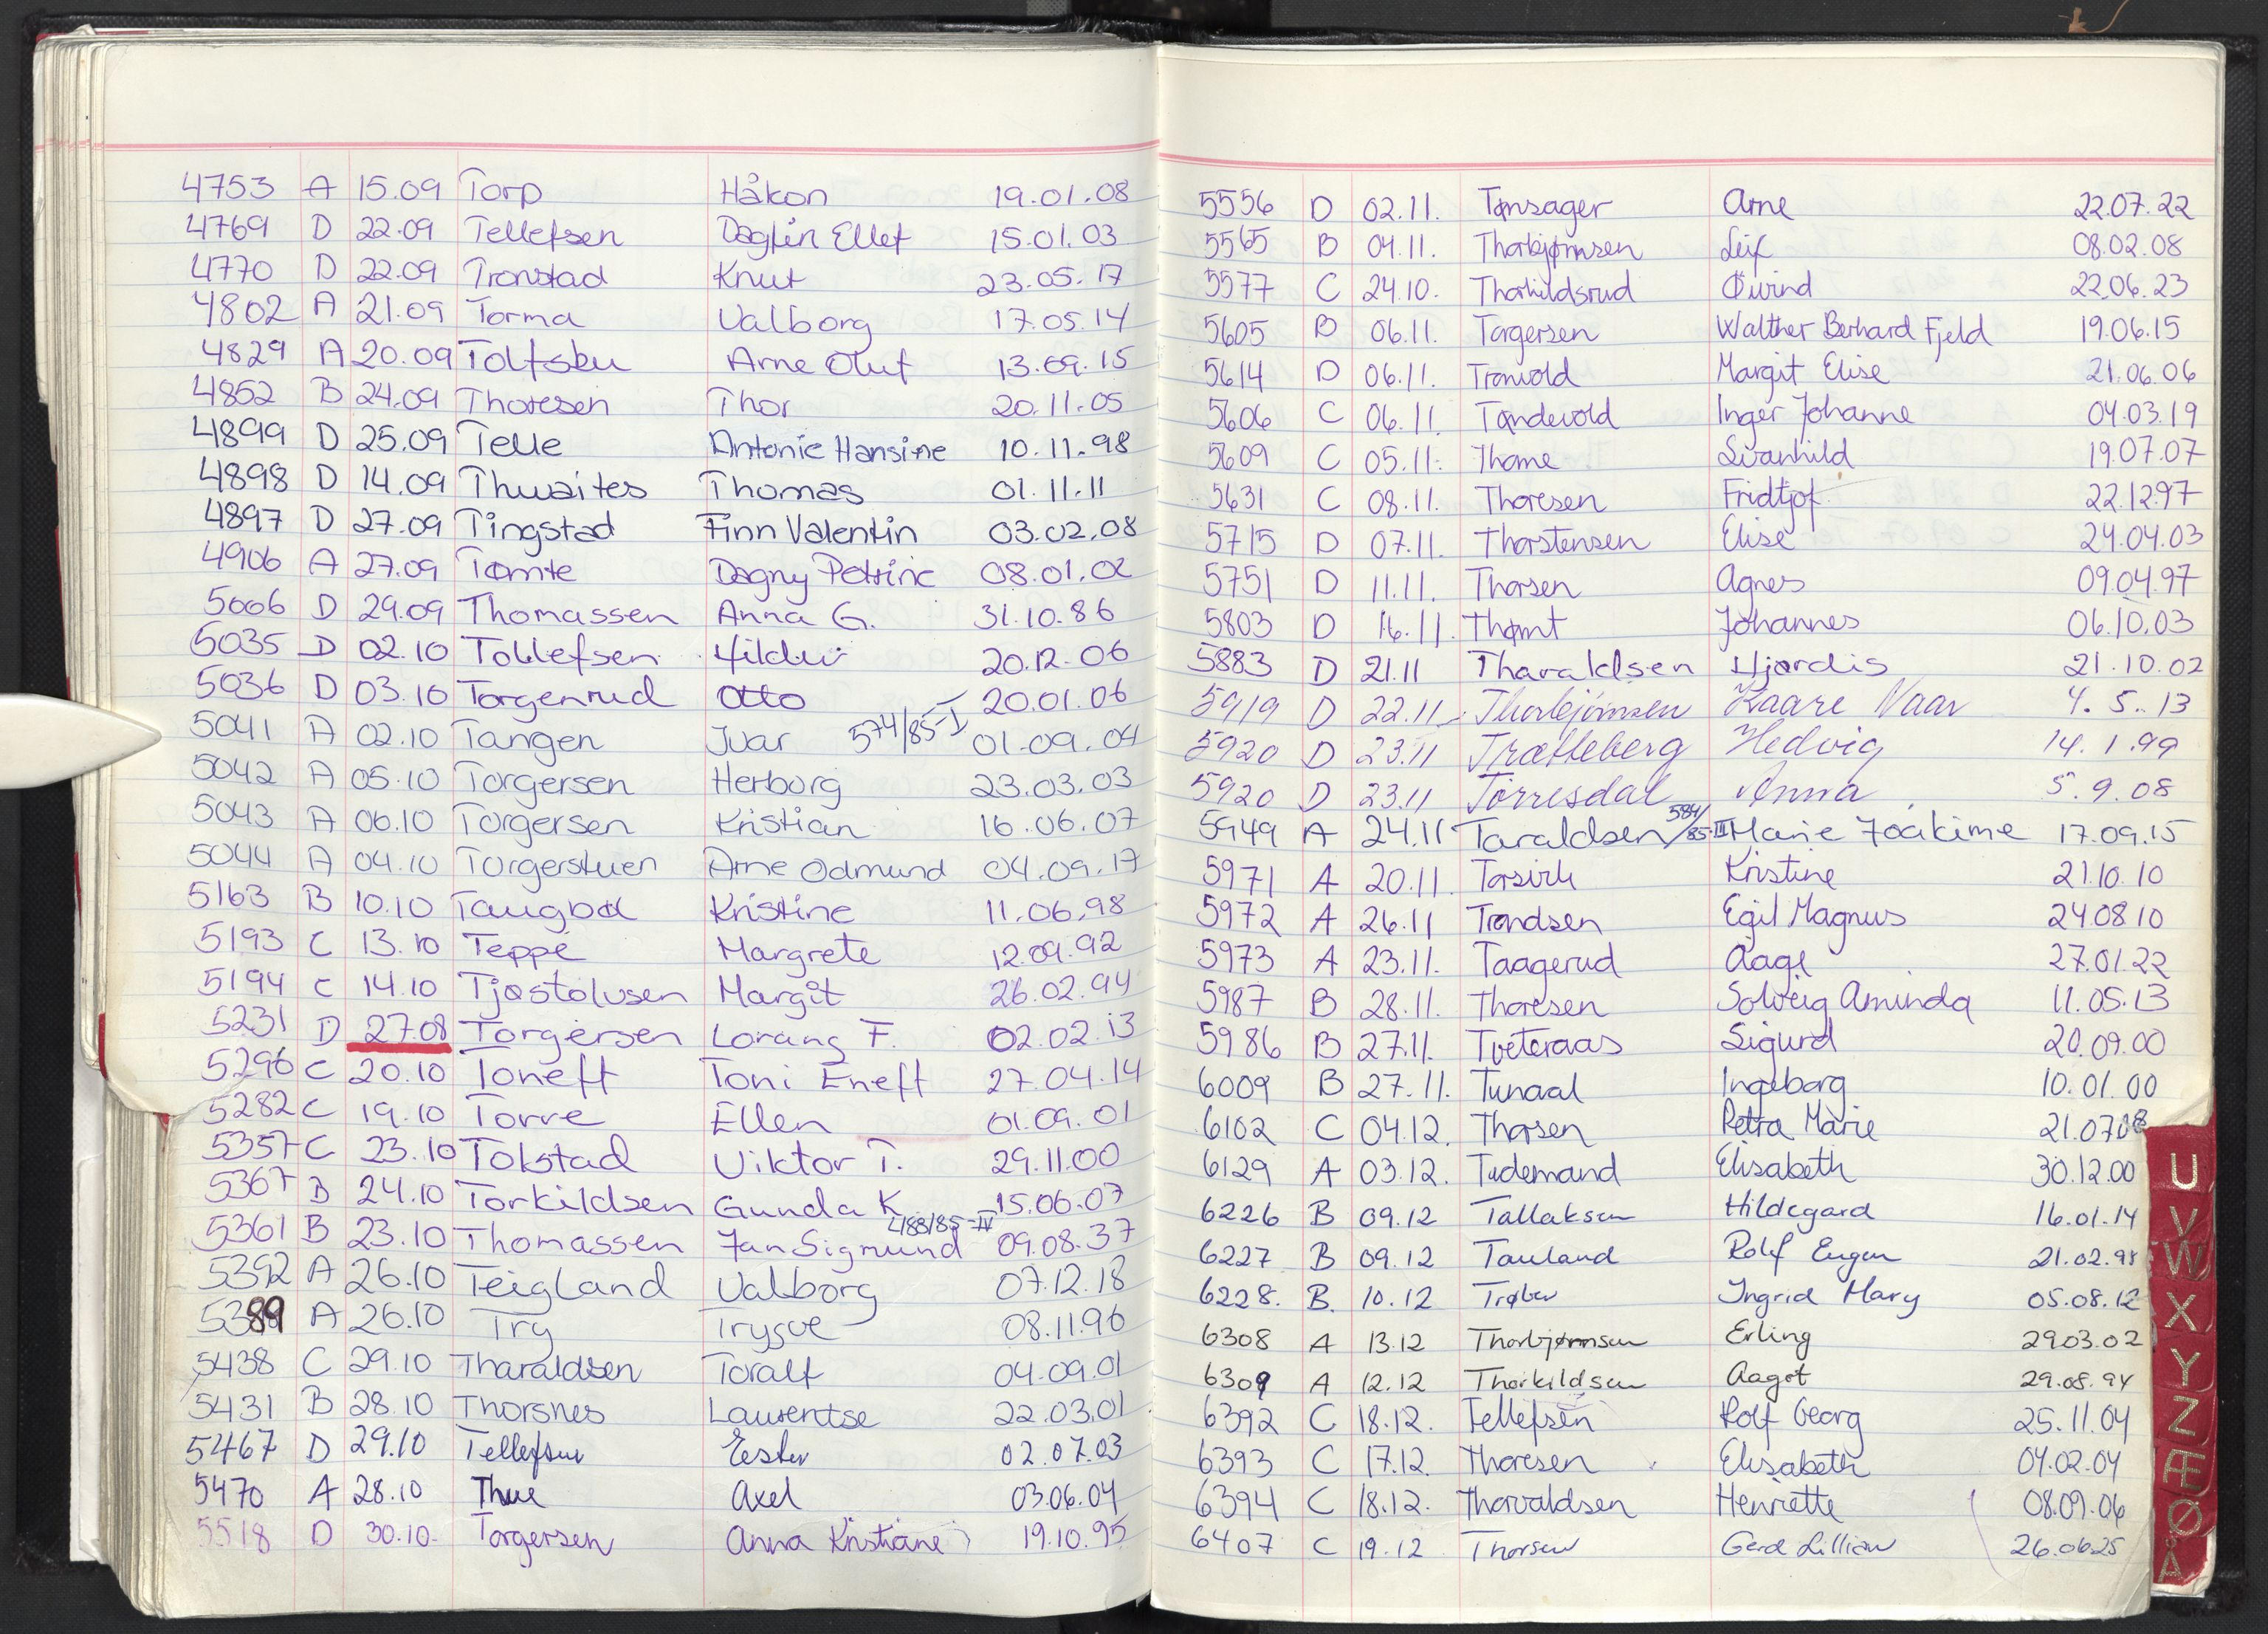 4753 A 15.09 Torp Håkon 19.01.08
4769 D 22.09 Tellefsen Dagfin Ellef 15.01.03
4770 D 22.09 Tronstad Knut 23.05.17
4802 A 21.09 Torma Valborg 17.05.14
4829 A 20.09 Toftsbu Arne Oluf 13.09.15
4852 B 24.09 Thoresen Thor 20.11.05
4899 D 25.09 Telle Antonie Hansine 10.11.98
4898 D 14.09 Thwaites Thomas 01.11.11
4897 D 27.09 Tingstad Finn Valentin 03.02.08
4906 A 27.09 Tømte Dagny Petrine 08.01.02
5006 D 29.09 Thomassen Anna G. 31.10.86
5035 D 02.10 Tollefsen Hildur 20.12.06
5036 D 03.10 Torgenrud Otto 20.01.06
5041 A 02.10 Tangen Ivar 574/85-I 01.09.04
5042 A 05.10 Torgersen Herborg 23.03.03
5043 A 06.10 Torgersen Kristian 16.06.07
5044 A 04.10 Torgerstuen Arne Odmund 04.09.17
5163 B 10.10 Taugbøl Kristine 11.06.98
5193 C 13.10 Teppe Margrete 12.09.92
5194 C 14.10 Tjøstolvsen Margit 26.02.94
5231 D 27.08 Torgersen Lorang F. 02.02.13
5296 C 20.10 Toneff Toni Eneff 27.04.14
5282 C 19.10 Torre Ellen 01.09.01
5357 C 23.10 Tokstad Viktor T. 29.11.00
5367 B 24.10 Torkildsen Gunda K 15.06.07
5361 B 23.10 Thomassen Jan Sigmund 488/85-IV 09.08.37
5392 A 26.10 Teigland Valborg 07.12.18
5389 A 26.10 Try Trygve 08.11.96
5438 C 29.10 Tharaldsen Toralf 04.09.01
5431 B 28.10 Thorsnes Laurentse 22.03.01
5467 D 29.10 Tellefsen Ester 02.07.03
5470 A 28.10 Thue Axel 03.06.04
5518 D 30.10. Torgersen Anna Kristiane 19.10.95
5556 D 02.11. Tønsager Arne 22.07.22
5565 B 04.11. Thorbjørnsen Leif 08.02.08
5577 C 24.10. Thorkildsrud Øivind 22.06.23
5605 B 06.11. Torgersen Walther Berhard Fjeld 19.06.15
5614 D 06.11. Tronvold Margit Elise 21.06.06
5606 C 06.11. Tandevold Inger Johanne 04.03.19
5609 C 05.11. Thome Svanhild 19.07.07
5631 C 08.11. Thoresen Fridtjof 22.12.97
5715 D 07.11. Thorstensen Elise 24.04.03
5751 D 11.11. Thorsen Agnes 09.04.97
5803 D 16.11. Thømt Johannes 06.10.03
5883 D 21.11 Tharaldsen Hjørdis 21.10.02
5919 D 22.11 Thorbjørnsen Kaare Naar 4. 5. 13
5920 D 23.11 Trætteberg Hedvig 14. 1. 99
5920 D 23.11 Tørresdal Anna 5. 9. 08
5949 A 24.11 Taraldsen 584/85-III Marie Joakime 17.09.15
5971 A 20.11. Torsvik Kristine 21.10.10
5972 A 26.11 Trondsen Egil Magnus 24.08.10
5973 A 23.11. Taagerud Aage 27.01.22
5987 B 28.11. Thoresen Solveig Aminda 11.05.13
5986 B 27.11. Tveteraas Sigurd 20.09.00
6009 B 27.11. Tunaal Ingeborg 10.01.00
6102 C 04.12. Thorsen Petra Marie 21.07.08
6129 A 03.12. Tidemand Elisabeth 30.12.00
6226 B 09.12 Tallaksen Hildegard 16.01.14
6227 B 09.12 Tauland Rolf Eugen 21.02.98
6228. B. 10.12 Trøber Ingrid Mary 05.08.12
6308 A 13.12 Thorbjørnsen Erling 29.03.02
6309 A 12.12 Thorkildsen Aagot 29.08.94
6392 C 18.12. Tellefsen Rolf Georg 25.11.04
6393 C 17.12. Thoresen Elisabeth 04.02.04
6394 C 18.12. Thorvaldsen Henriette 08.09.06
6407 C 19.12 Thorsen Gerd Lillian 26.06.25
U
V
W
X
Y
Z
Æ
Ø
Å